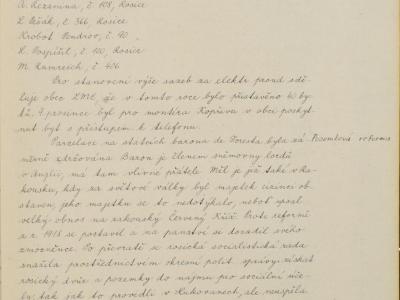 A. Rezanina, č. 108, Rosice
L. Ušák, č. 366, Rosice
Krobot Vendrov, č. 40
K. Pospíšil, č. 100, Rosice
M. Kumreich, č. 426
Pro stanovení výše sazeb za elektr proud sdě-
luje obec ZME, že v tomto roce bylo přistavěno 40 by-
tů. 1. prosince byl pro montéra Kopřiva v obci poskyt-
nut byt s přístupem k telefonu.
Parcelace na statcích barona de Foresta byla zá- Pozemková reforma
měrně zdržována Baron je členem sněmovny lordů
v Anglii, má tam vlivné přátele Měl je již také v Ra-
kousku, kdy za světové války byl majetek cizinců ob-
staven, jeho majetku se to nedotýkalo, neboť poslal
velký obnos na rakouský Červený Kříž Proto reformě
a r. 1918 se postavil a na panství se dosadil svého
zmocněnce. Po převratě se rosická socialistická rada
snažila prostřednictvím okresní polit. správy získat
rosický dvůr a pozemky do nájmu pro sociální úče-
ly, tak jak to provedli v Hukovanech, ale neuspěla